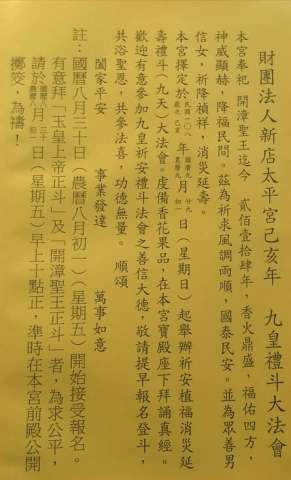 財團法人新店太平宮己亥年　九皇禮斗大法會
本宮奉祀　開漳聖王迄今　貳佰壹拾肆年，香火鼎盛，福佑四方，
神威顯赫，降福民間。茲為祈求風調雨順，國泰民安。並為眾善男
信女，祈降禎祥，消災延壽。
本宮擇定於民國一〇八歲次己亥年國曆九農曆九月廿九初一日（星期日）起舉辦祈安植福消災延
壽禮斗（九天）大法會。虔備香花果品，在本宮寶殿座下拜誦真經。
歡迎有意參加九皇祈安禮斗法會之善信大德，敬請提早報名登斗，
共浴聖恩，共參法喜，功德無量。　順頌
闔家平安　　事業發達　　萬事如意
註：國曆八月三十日（農曆八月初一）（星期五）開始接受報名。
有意拜「玉皇上帝正斗」及「開漳聖王正斗」者，為求公平，
請於國曆八農曆八月三十初一日（星期五）早上十點正，準時在本宮前殿公開
擲筊，為禱！